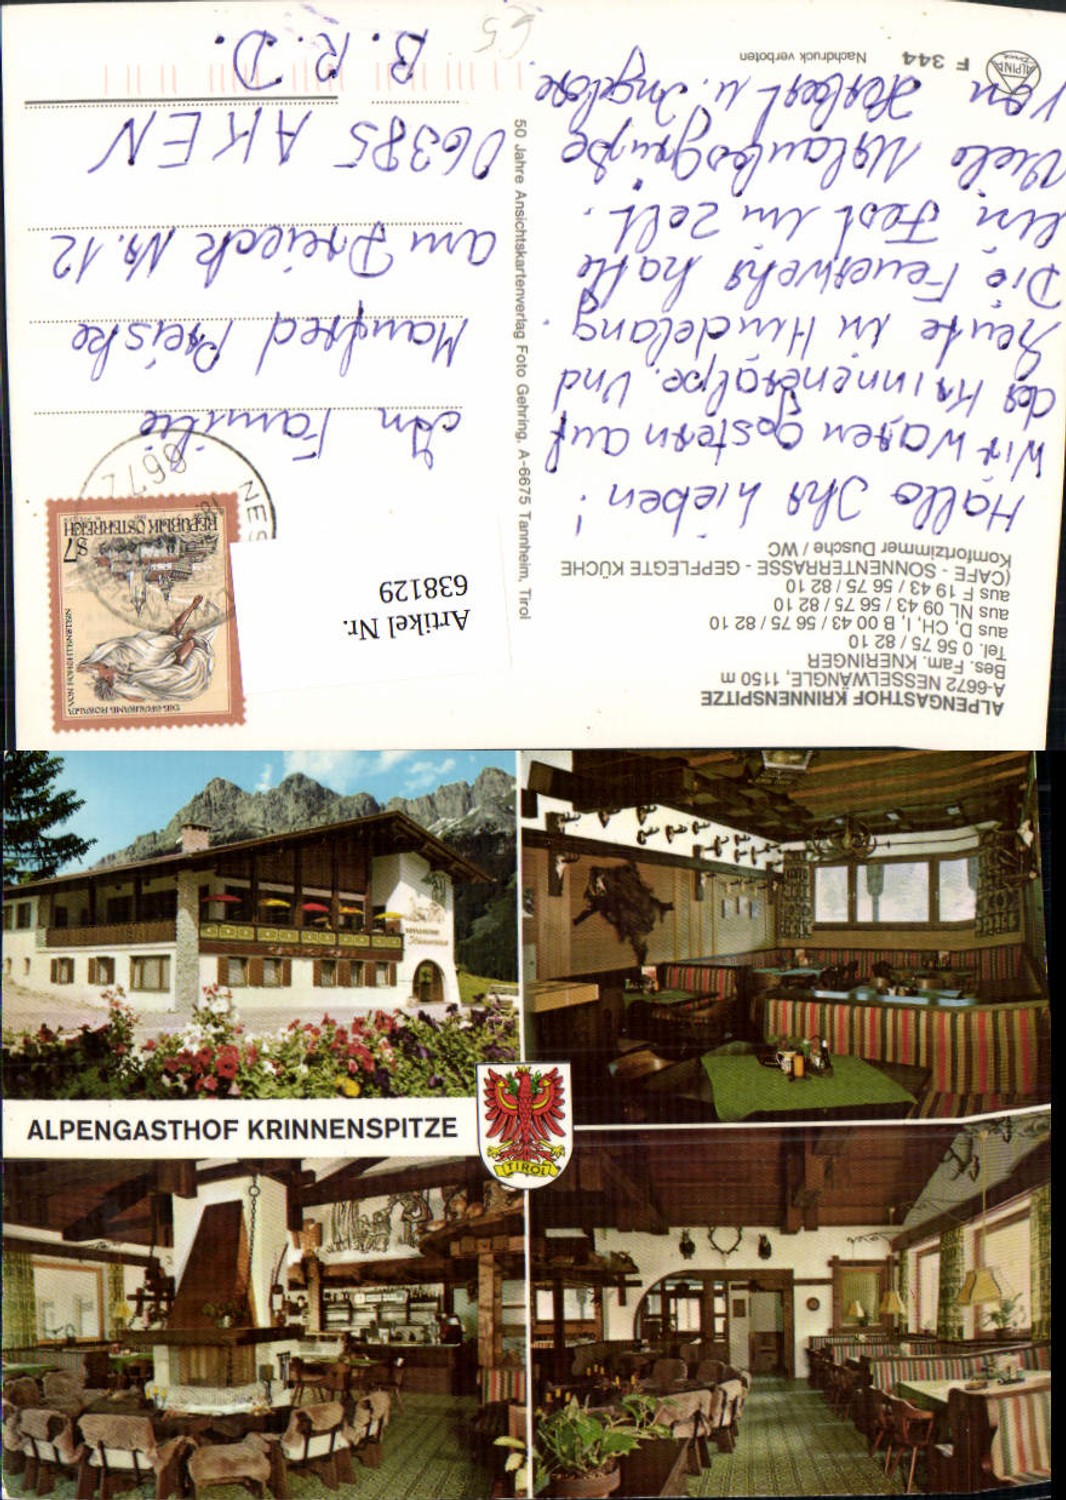 ALPENGASTHOF KRINNENSPITZE
A-6672 NESSELWÄNGLE, 1150 m
Bes. Fam. KNERINGER
Tel. 0 56 75 / 82 10
aus D, CH, I, B 00 43 / 56 75 / 82 10
aus NL 09 43 / 56 75 / 82 10
aus F 19 43 / 56 75 / 82 10
(CAFE - SONNENTERRASSE - GEPFLEGTE KÜCHE
Komfortzimmer Dusche / WC
Hallo Ihr Lieben!
Wir waren gestern auf
der Krinnenalpe. Und
heute in Hindelang.
Die Feuerwehr hatte
ein Fest im Zelt.
Viele Urlaubsgrüße
von Herbert u. Ingelore
F 344
Nachdruck verboten
ALPINA
Druck
50 Jahre Ansichtskartenverlag Foto Gehring, A-6675 Tannheim, Tirol
Artikel Nr.
638129
S 7
REPUBLIK ÖSTERREICH
VON HOHENTWIEL
6672
NES
An Familie
Manfred Preiske
am Dreieck Nr. 12
06385 AKEN
B. R. D.
65
ALPENGASTHOF KRINNENSPITZE
TIROL